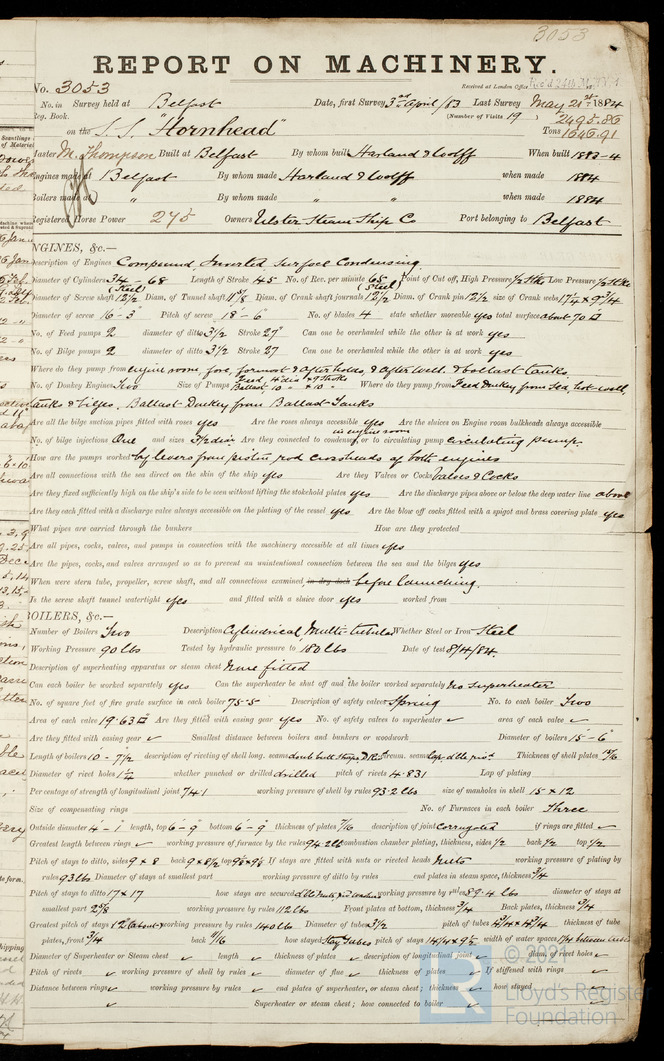 3053
REPORT ON MACHINERY.
No. 3053 Received at London Office
No. in Survey held at Belfast Date, first Survey 3rd April/83 Last Survey May 21st 1884
Reg. Book. (Number of Visits 19) 2495.86
on the S.S. "Hornhead" Tons 1646.91
Master M. Thompson Built at Belfast By whom built Harland & Wolff When built 1883-4
Engines made at Belfast By whom made Harland & Wolff when made 1884
Boilers made at " By whom made " " when made 1884
Registered Horse Power 275 Owners Ulster Steam Ship Co Port belonging to Belfast
ENGINES, &c.—
Description of Engines Compound, Inverted Surface Condensing
Diameter of Cylinders 34 68 Length of Stroke 45 No. of Rev. per minute 65 Point of Cut off, High Pressure Low Pressure
(Steel) (Steel)
Diameter of Screw shaft 12½ Diam. of Tunnel shaft 11⅝ Diam. of Crank shaft journals 12½ Diam. of Crank pin 12½ size of Crank webs 17½ x 9¾
Diameter of screw 16-3 Pitch of screw 18-6 No. of blades 4 state whether moveable yes total surface about 70
No. of Feed pumps 2 diameter of ditto 3½ Stroke 27" Can one be overhauled while the other is at work yes
No. of Bilge pumps 2 diameter of ditto 3½ Stroke 27 Can one be overhauled while the other is at work yes
Where do they pump from engine room, fore, foremost & after holds, & after well & ballast tanks
No. of Donkey Engines Two Size of Pumps Feed 4 dia x 9 stroke Ballast 10 x 10 Where do they pump from Feed Donkey from Sea, hot-well,
tanks & bilges, Ballast Donkey from Ballast Tanks
Are all the bilge suction pipes fitted with roses yes Are the roses always accessible yes Are the sluices on Engine room bulkheads always accessible
in engine room
No. of bilge injections One and sizes 5½ dia Are they connected to condenser, or to circulating pump circulating pump.
How are the pumps worked by levers from piston rod crossheads of both engines
Are all connections with the sea direct on the skin of the ship yes Are they Valves or Cocks Valves & Cocks
Are they fixed sufficiently high on the ship's side to be seen without lifting the stokehold plates yes Are the discharge pipes above or below the deep water line above
Are they each fitted with a discharge valve always accessible on the plating of the vessel yes Are the blow off cocks fitted with a spigot and brass covering plate yes
What pipes are carried through the bunkers How are they protected
Are all pipes, cocks, valves, and pumps in connection with the machinery accessible at all times yes
Are the pipes, cocks, and valves arranged so as to prevent an unintentional connection between the sea and the bilges yes
When were stern tube, propeller, screw shaft, and all connections examined in dry dock before launching.
Is the screw shaft tunnel watertight yes and fitted with a sluice door yes worked from
BOILERS, &c.—
Number of Boilers Two Description Cylindrical, Multi-tubular Whether Steel or Iron Steel
Working Pressure 90 lbs Tested by hydraulic pressure to 180 lbs Date of test 8/4/84.
Description of superheating apparatus or steam chest None fitted
Can each boiler be worked separately yes Can the superheater be shut off and the boiler worked separately no superheater
No. of square feet of fire grate surface in each boiler 75.5 Description of safety valves Spring No. to each boiler Two
Area of each valve 19.63 Are they fitted with easing gear yes No. of safety valves to superheater ✓ area of each valve ✓
Are they fitted with easing gear ✓ Smallest distance between boilers and bunkers or woodwork Diameter of boilers 15-6
Length of boilers 10-7½ description of riveting of shell long. seams doub butt straps circum. seams lap Thickness of shell plates 15/16
Diameter of rivet holes 1¼ whether punched or drilled drilled pitch of rivets 4.831 Lap of plating
Per centage of strength of longitudinal joint 74.1 working pressure of shell by rules 93.2 lbs size of manholes in shell 15 x 12
Size of compensating rings No. of Furnaces in each boiler Three
Outside diameter 4-1 length, top 6-9 bottom 6-9 thickness of plates 7/16 description of joint corrugated if rings are fitted ✓
Greatest length between rings ✓ working pressure of furnace by the rules 94.2 lbs combustion chamber plating, thickness, sides ½ back ½ top ½
Pitch of stays to ditto, sides 9 x 8 back 9 x 8½ top If stays are fitted with nuts or riveted heads Nuts working pressure of plating by
rules 93 lbs Diameter of stays at smallest part working pressure of ditto by rules end plates in steam space, thickness ¾
Pitch of stays to ditto 17 x 17 how stays are secured working pressure by rules 89.4 lbs diameter of stays at
smallest part 2⅝ working pressure by rules 112 lbs Front plates at bottom, thickness ¾ Back plates, thickness ¾
Greatest pitch of stays working pressure by rules 140 lbs Diameter of tubes 3½ pitch of tubes 4¾ x 4¾ thickness of tube
plates, front ¾ back 11/16 how stayed Stay Tubes pitch of stays 14¼ x 9½ width of water spaces
Diameter of Superheater or Steam chest ✓ length ✓ thickness of plates ✓ description of longitudinal joint ✓ diam. of rivet holes ✓
Pitch of rivets ✓ working pressure of shell by rules ✓ diameter of flue ✓ thickness of plates ✓ If stiffened with rings ✓
Distance between rings ✓ working pressure by rules ✓ end plates of superheater, or steam chest; thickness ✓ how stayed ✓
✓ Superheater or steam chest; how connected to boiler ✓
© 2021
Lloyd's Register
Foundation